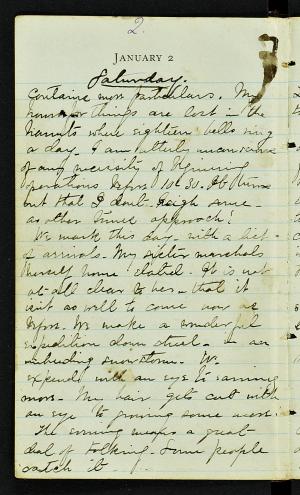 2.
JANUARY 2
Saturday.
Contains more particulars. My
things are lost in the
haunts where eighteen bells ring
a day. I am utterly unconscious
of any necessity of beginning
operations before 10.30. It turns
out that I don't
as other times approach!
We mark this day with a bit
of arrivals. My sister marshals
herself home elated. It is not
at all clear to her that it
isn't as well to come now as
before. We make a wonderful
expedition down street in an
snowstorm. We
expend with an eye to earning
more. My hair gets cut with
an eye to growing some more.
The evening wears a great
deal of talking. Some people
catch it.